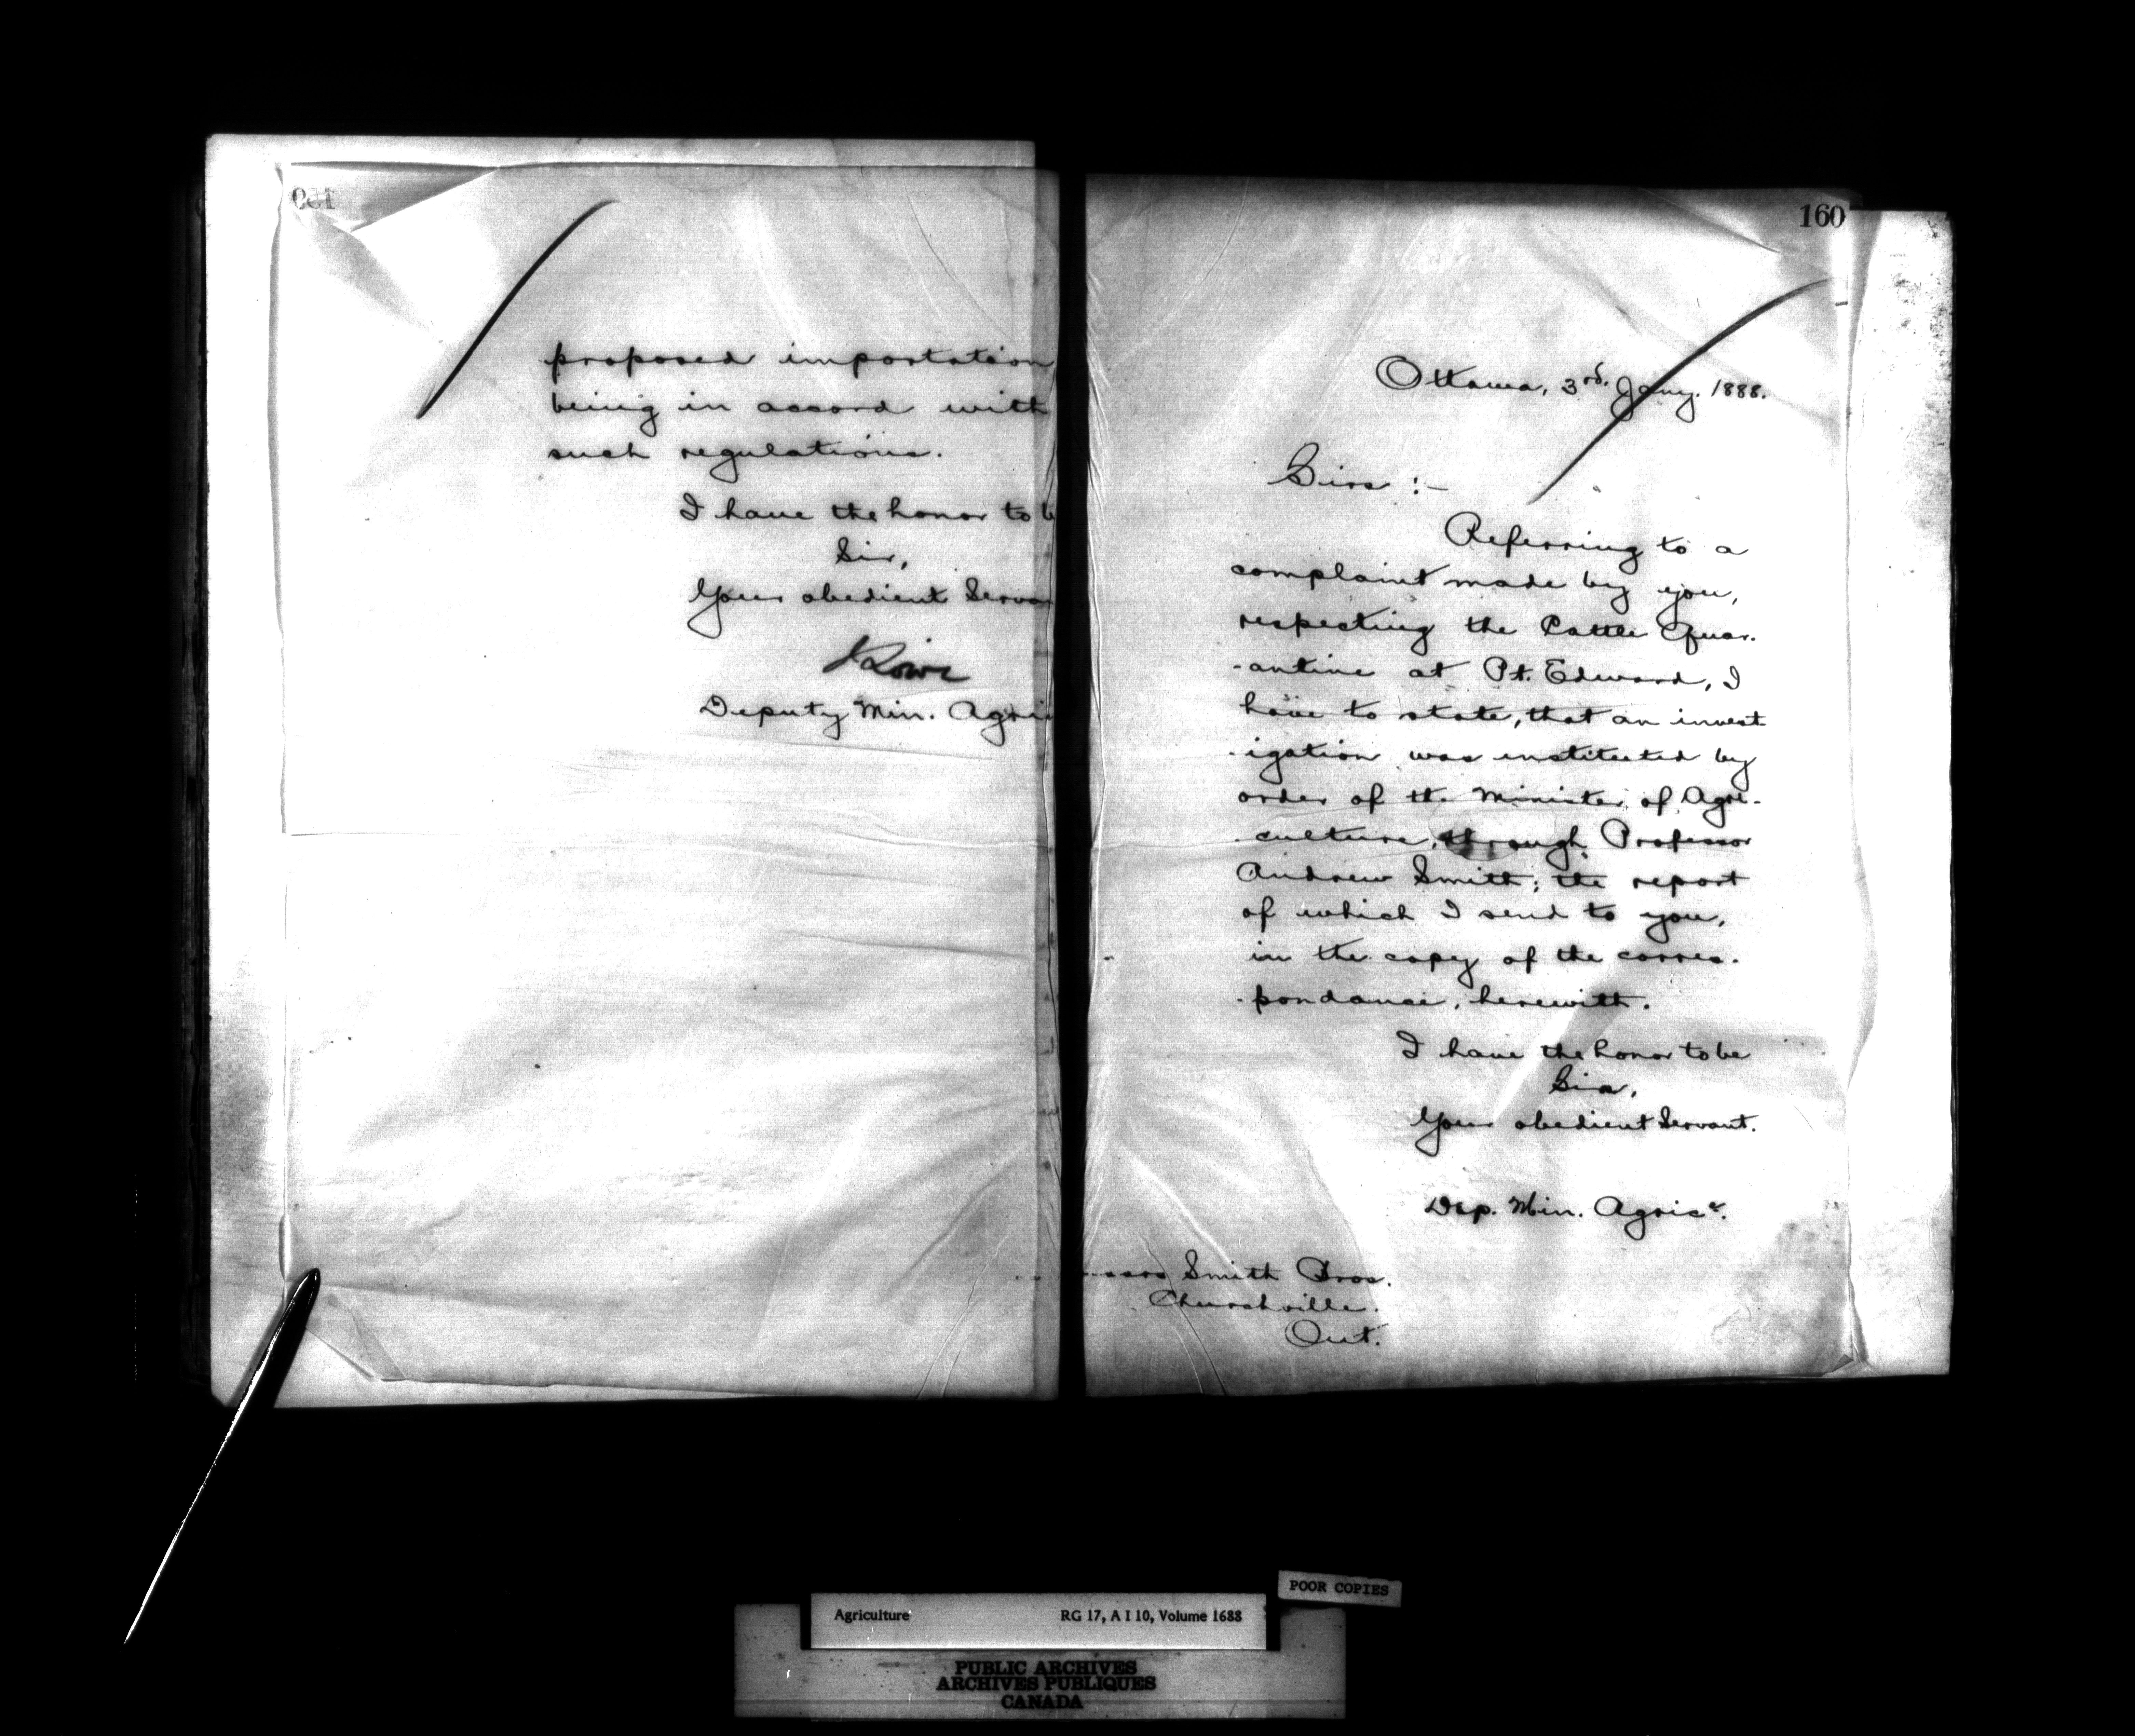 159
proposed importation
being in accord with
such regulations.
I have the honor to b
Sir,
Your obedient Serva
JLowe
Deputy Min. Agri
160
Ottawa, 3rd. Jany. 1888.
Sirs :-
Referring to a
complaint made by you,
respecting the Cattle Quar-
-antine at Pt. Edward, I
have to state, that an invest
-igation was instituted by
order of the Minister of Agri-
-culture, through Professor
Andrew Smith; the report
of which I send to you,
in the copy of the corres-
-pondance, herewith.
I have the honor to be
Sirs,
Your obedient Servant.
Dep. Min. Agric.
Smith Bros.
Churchville.
Ont.
POOR COPIES
Agriculture RG 17, A I 10, Volume 1688
PUBLIC ARCHIVES
ARCHIVES PUBLIQUES
CANADA